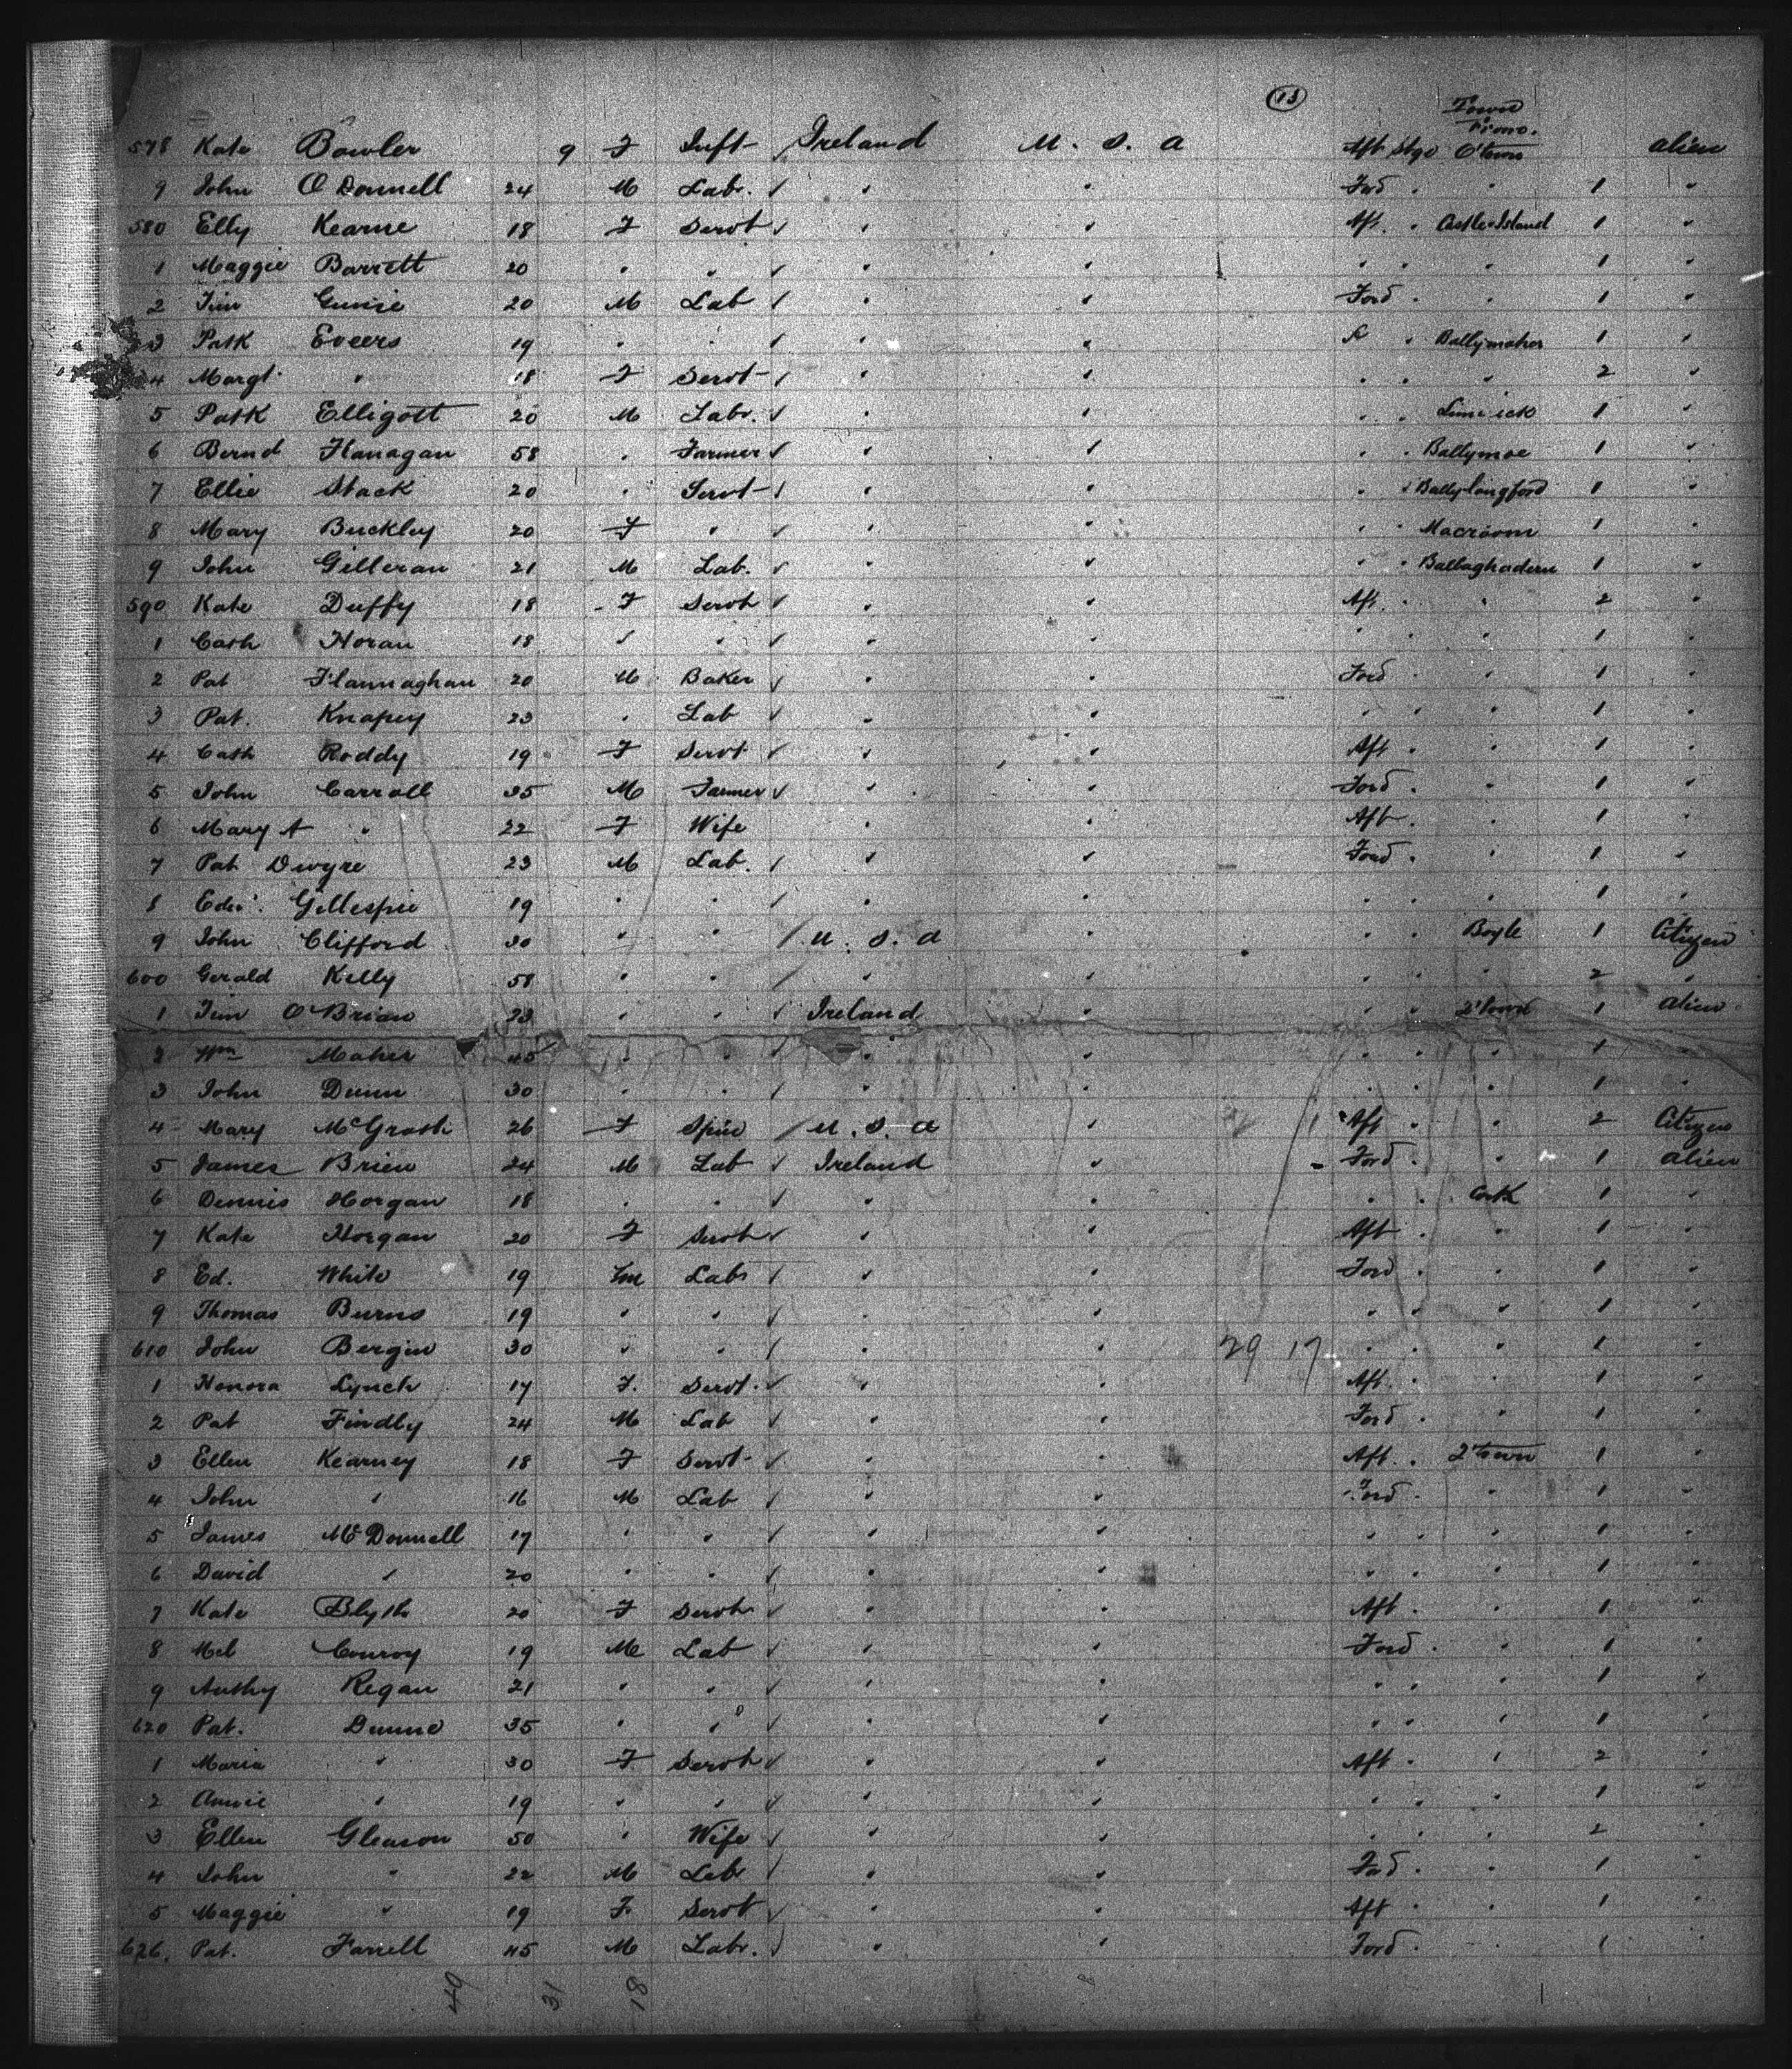 13
Town
From.
578 Kate Bowler 9 F Inft Ireland U. S. A Aft Stge Q'town alien
9 John O'Donnell 24 M Lab. ✓ " " Ford " " 1 "
580 Elly Kearne 18 F Servt ✓ " " Aft. " Castle Island 1 "
1 Maggie Barrett 20 " " ✓ " " " " " 1 "
2 Tim 20 M Lab ✓ " " Ford " " 1 "
3 Patk Eveers 19 " " ✓ " " " " 1 "
4 Margt " 18 F Servt ✓ " " " " " 2 "
5 Patk Elligott 20 M Labr. ✓ " " " " Limerick 1 "
6 Bernd Flanagan 58 " Farmer ✓ " " " " Ballymoe 1 "
7 Ellie Stack 20 " Servt ✓ " " " " Ballylongford 1 "
8 Mary Buckley 20 F " ✓ " " " " Macroom 1 "
9 John Gilleran 21 M Lab. ✓ " " " " Ballaghadern 1 "
590 Kate Duffy 18 F Servt ✓ " " Aft. " " 2 "
1 Cath Horan 18 " " ✓ " " " " " 1 "
2 Pat Flannaghan 20 M Baker ✓ " " Ford " " 1 "
3 Pat. 23 " Lab ✓ " " " " " 1 "
4 Cath Roddy 19 F Servt ✓ " " Aft " " 1 "
5 John Carroll 35 M Farmer ✓ " " Ford " " 1 "
6 Mary A " 22 F Wife " " Aft " " 1 "
7 Pat Dwyre 23 M Lab. ✓ " " Ford " " 1 "
8 Gillespie 19 " " ✓ " " " " " 1 "
9 John Clifford 30 " " ✓ U. S. A " " " Boyle 1 Citizen
600 Gerald Kelly 58 " " ✓ " " " " " 2 "
1 Tim O'Brian 23 " " ✓ Ireland " " " Q'town 1 alien
2 Wm Maher 45 " " ✓ " " " " " 1 "
3 John Dunn 30 " " ✓ " " " " " 1 "
4 Mary McGrath 26 F Spin ✓ U. S. A " Aft " " 2 Citizen
5 James Brien 24 M Lab ✓ Ireland " Ford " " 1 alien
6 Dennis Horgan 18 " " ✓ " " " " Cork 1 "
7 Kate Horgan 20 F Servt ✓ " " Aft " " 1 "
8 Ed. White 19 M Labr ✓ " " Ford " " 1 "
9 Thomas Burns 19 " " ✓ " " " " " 1 "
610 John Bergin 30 " " ✓ " " 29 17 " " " 1 "
1 Honora Lynch 17 F. Servt. ✓ " " Aft. " " 1 "
2 Pat Findly 24 M Lab ✓ " " Ford " " 1 "
3 Ellen Kearney 18 F Servt ✓ " " Aft. " Q'town 1 "
4 John " 16 M Lab ✓ " " Ford " " 1 "
5 James McDonnell 17 " " ✓ " " " " " 1 "
6 David " 20 " " ✓ " " " " " 1 "
7 Kate Blyth 20 F Servt ✓ " " Aft " " 1 "
8 Mcl Conroy 19 M Lab ✓ " " Ford " " 1 "
9 Anthy Regan 21 " " ✓ " " " " " 1 "
620 Pat. Dunne 35 " " ✓ " " " " " 1 "
1 Maria " 30 F Servt ✓ " " Aft " " 2 "
2 Annie " 19 " " ✓ " " " " " 1 "
3 Ellen Gleason 50 " Wife ✓ " " " " " 2 "
4 John " 22 M Labr ✓ " " Ford " " 1 "
5 Maggie " 19 F. Servt ✓ " " Aft " " 1 "
626. Pat. Farrell 45 M Labr. ✓ " " Ford " " 1 "
49 31 18